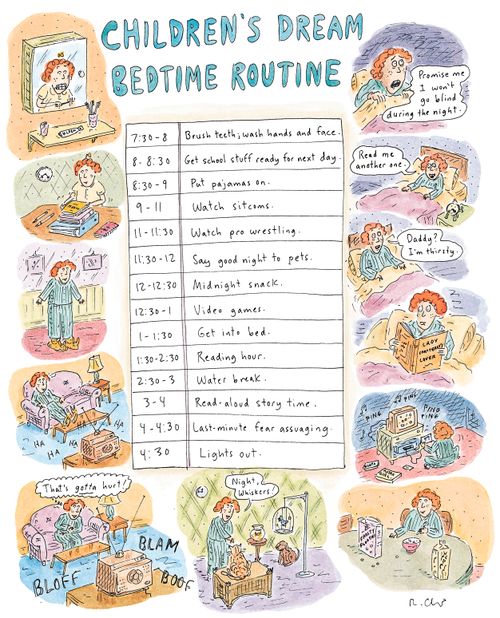 CHILDREN'S DREAM
BEDTIME ROUTINE
7:30-8 Brush teeth; wash hands and face.
8-8:30 Get school stuff ready for next day.
8:30-9 Put pajamas on.
9-11 Watch sitcoms.
11-11:30 Watch pro wrestling.
11:30-12 Say good night to pets.
12-12:30 Midnight snack.
12:30-1 Video games.
1-1:30 Get into bed.
1:30-2:30 Reading hour.
2:30-3 Water break.
3-4 Read-aloud story time.
4-4:30 Last-minute fear assuaging.
4:30 Lights out.
HA
HA
HA
HA
That's gotta hurt!
BLAM
BLOFF
BOOF
Night,
Whiskers!
PING
PING
PING
PING
LADY
CHATTERLEY'S
LOVER
Daddy?
I'm thirsty.
Read me
another one.
Promise me
I won't
go blind
during the night.
R. Chast